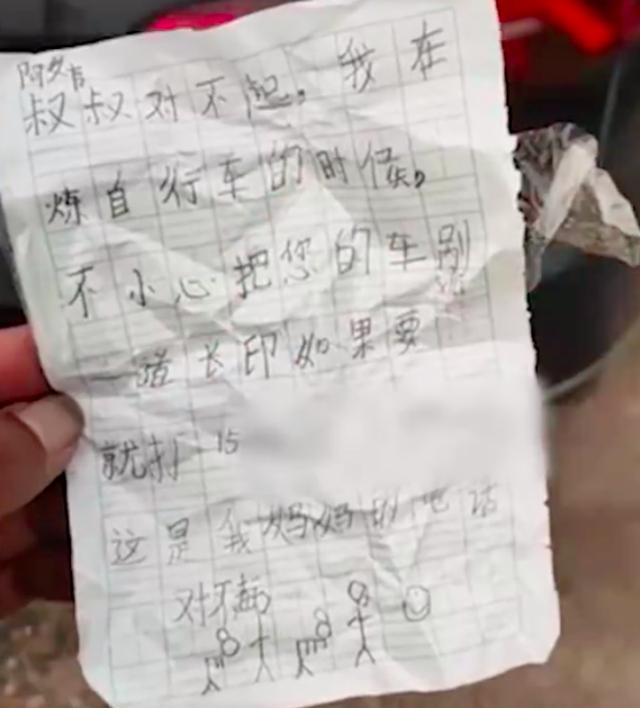 阿姨
叔叔对不起,我在
炼自行车的时候,
不小心把您的车刮
一道长印如果要
就打15
这是我妈妈的电话
对不起